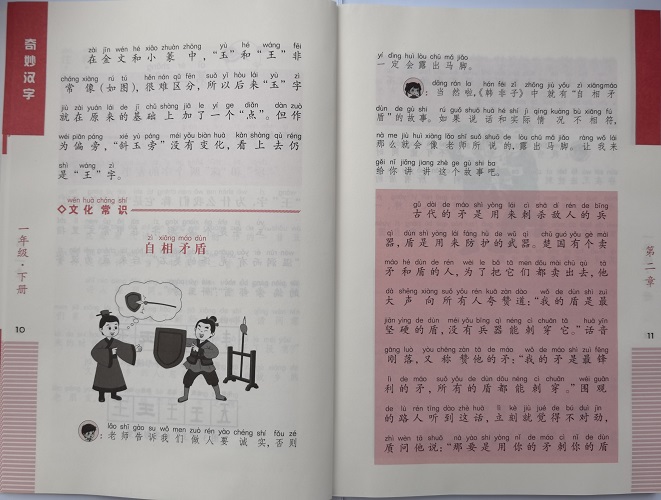 奇妙汉字
一年级·下册
10
zài jīn wén hé xiǎo zhuàn zhōng yù hé wáng fēi
在金文和小篆中，“玉”和“王”非
cháng xiàng rú tú hěn nán qū fēn suǒ yǐ hòu lái yù zì
常像(如图)，很难区分，所以后来“玉”字
jiù zài yuán lái de jī chǔ shàng jiā le yí ge diǎn dàn zuò
就在原来的基础上加了一个“点”。但作
wéi piān páng xié yù páng méi yǒu biàn huà kàn shàng qù réng
为偏旁，“斜玉旁”没有变化，看上去仍
shì wáng zì
是“王”字。
wén huà cháng shí
文化常识
zì xiāng máo dùn
自相矛盾
lǎo shī gào su wǒ men zuò rén yào chéng shí fǒu zé
：老师告诉我们做人要诚实，否则
yí dìng huì lòu chū mǎ jiǎo
一定会露出马脚。
dāng rán la hán fēi zǐ zhōng jiù yǒu zì xiāng máo
：当然啦，《韩非子》中就有“自相矛
dùn de gù shi rú guǒ shuō huà hé shí jì qíng kuàng bù xiāng fú
盾”的故事。如果说话和实际情况不相符，
nà me jiù huì xiàng lǎo shī suǒ shuō de lòu chū mǎ jiǎo ràng wǒ lái
那么就会像老师所说的，露出马脚。让我来
gěi nǐ jiǎng jiang zhè ge gù shi ba
给你讲讲这个故事吧。
gǔ dài de máo shì yòng lái cì shā dí rén de bīng
古代的矛是用来刺杀敌人的兵
qì dùn shì yòng lái fáng hù de wǔ qì chǔ guó yǒu gè mài
器，盾是用来防护的武器。楚国有个卖
máo hé dùn de rén wèi le bǎ tā men dōu mài chū qù tā
矛和盾的人，为了把它们都卖出去，他
dà shēng xiàng suǒ yǒu rén kuā zàn dào wǒ de dùn shì zuì
大声向所有人夸赞道：“我的盾是最
jiān yìng de dùn méi yǒu bīng qì néng cì chuān tā huà yīn
坚硬的盾，没有兵器能刺穿它。”话音
gāng luò yòu chēng zàn tā de máo wǒ de máo shì zuì fēng
刚落，又称赞他的矛：“我的矛是最锋
lì de máo suǒ yǒu de dùn dōu néng cì chuān wéi guān
利的矛，所有的盾都能刺穿。”围观
de lù rén tīng dào zhè huà lì kè jiù jué de bú duì jìn
的路人听到这话，立刻就觉得不对劲，
zhì wèn tā shuō nà yào shi yòng nǐ de máo cì nǐ de dùn
质问他说：“那要是用你的矛刺你的盾
第二章
11